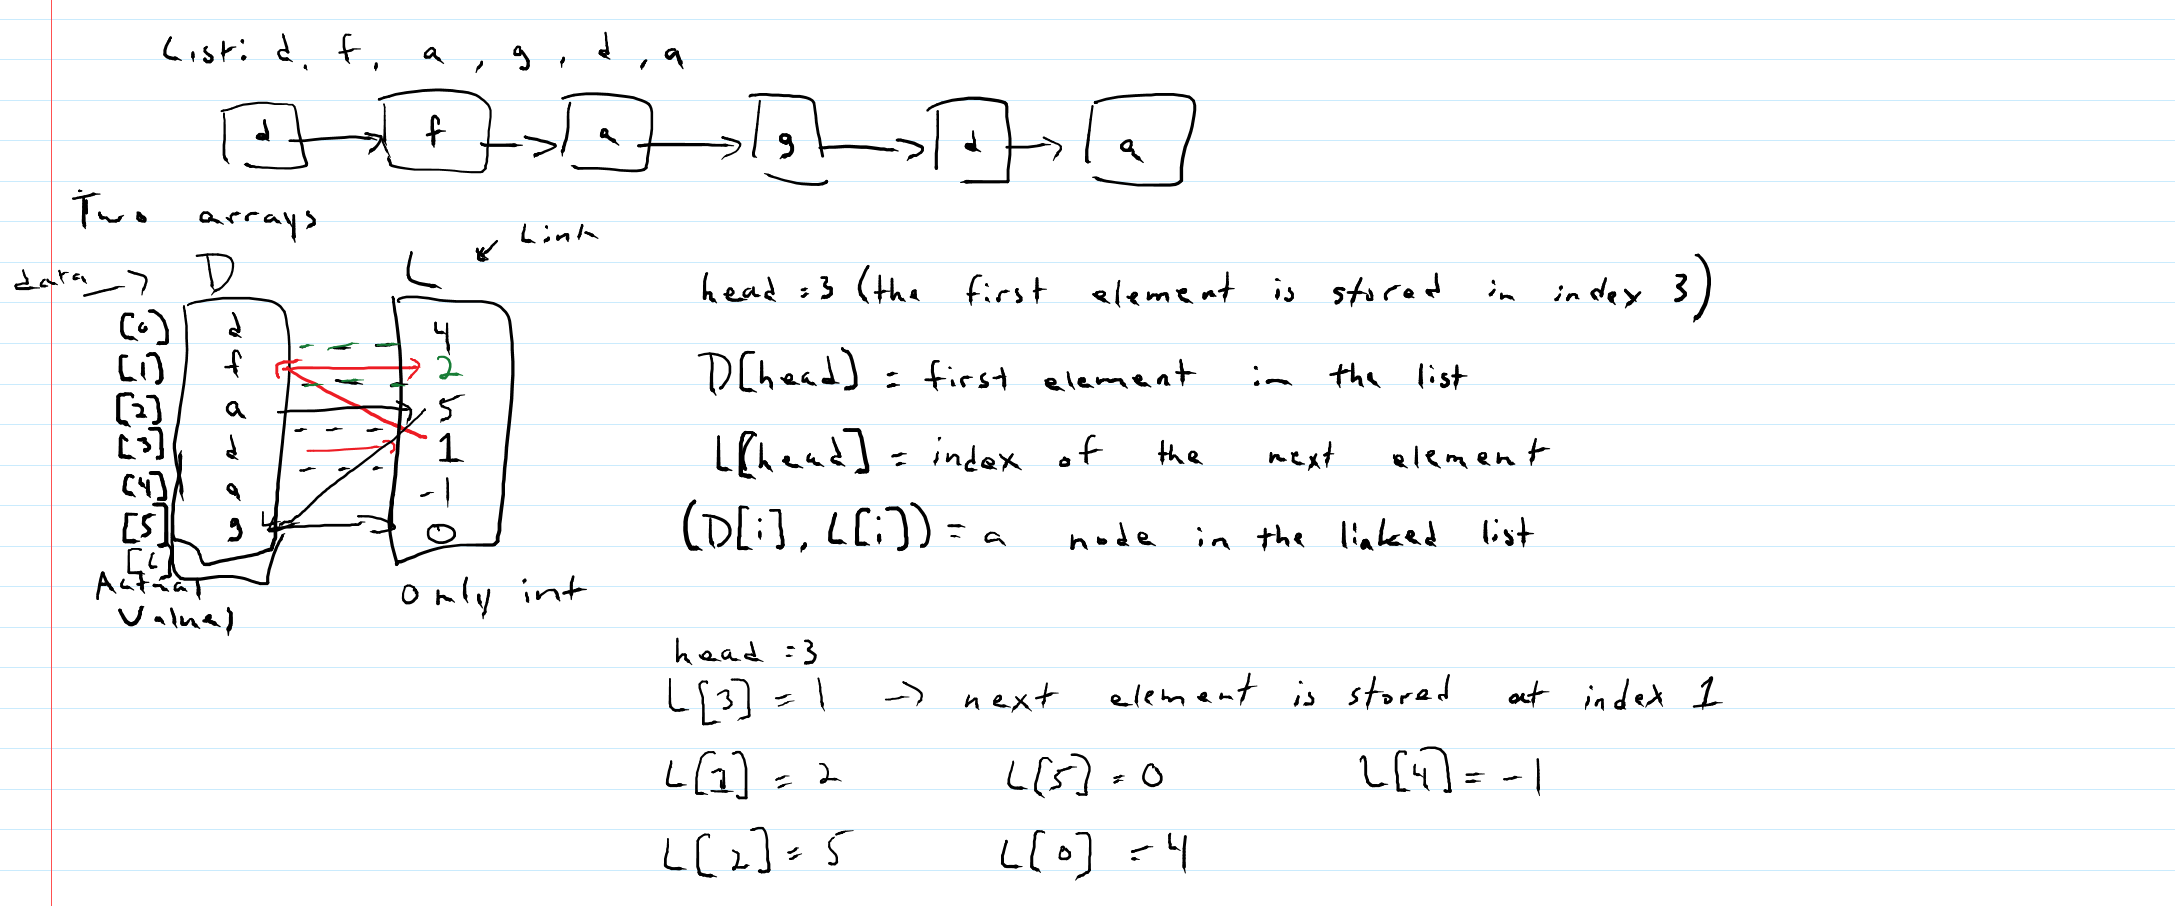 List: d, f, a, g, d, a
d f a g d a
Two arrays
Link
data D L
[0] d 4
[1] f 2
[2] a 5
[3] d 1
[4] a -1
[5] g 0
Actual
Values
Only int
head = 3 (the first element is stored in index 3)
D[head] = first element in the list
L[head] = index of the next element
(D[i], L[i]) = a node in the linked list
head = 3
L[3] = 1 → next element is stored at index 1
L[1] = 2 L[5] = 0 L[4] = -1
L[2] = 5 L[0] = 4